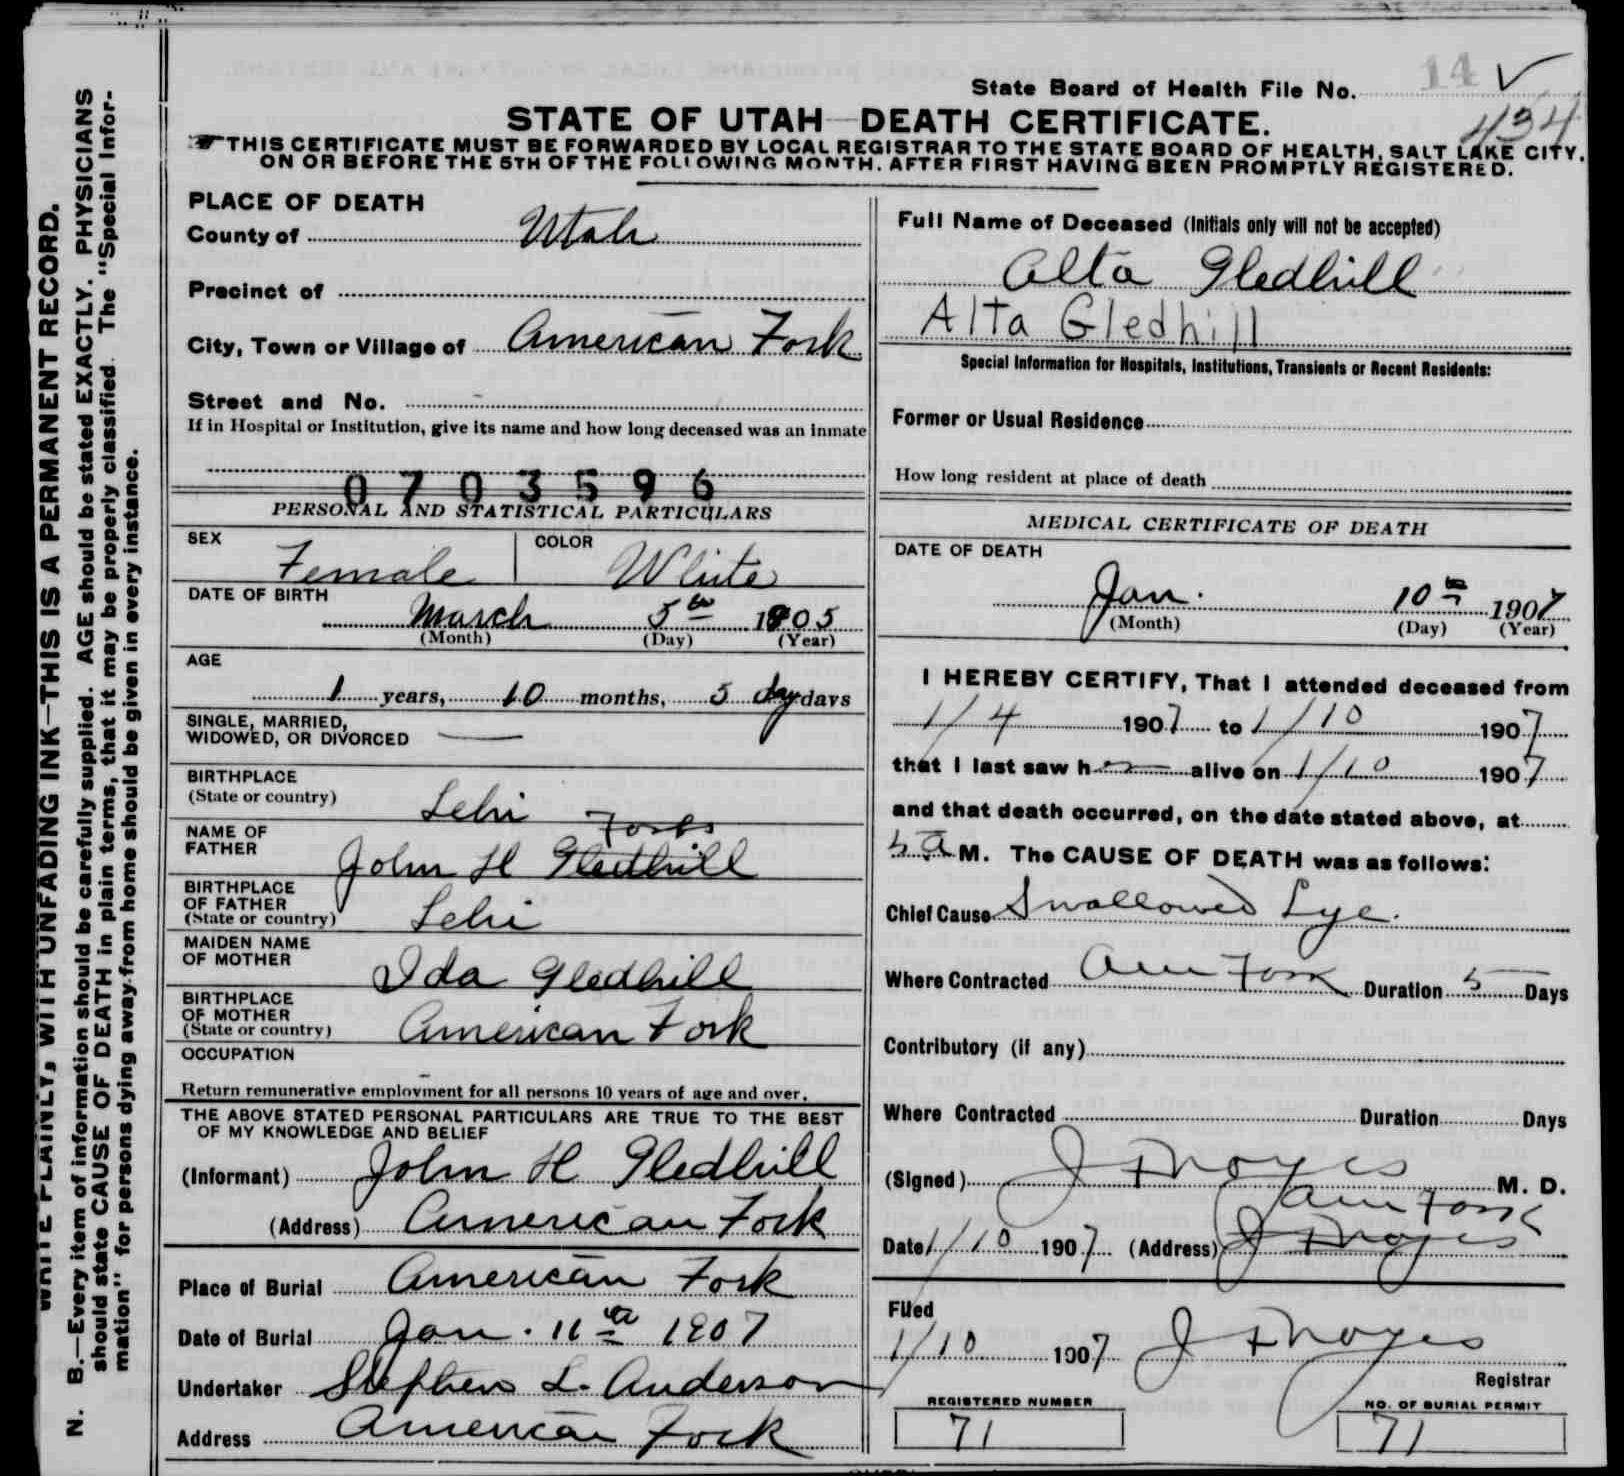 State Board of Health File No. 14
434
STATE OF UTAH—DEATH CERTIFICATE.
THIS CERTIFICATE MUST BE FORWARDED BY LOCAL REGISTRAR TO THE STATE BOARD OF HEALTH, SALT LAKE CITY,
ON OR BEFORE THE 5TH OF THE FOLLOWING MONTH. AFTER FIRST HAVING BEEN PROMPTLY REGISTERED.
WRITE PLAINLY, WITH UNFADING INK—THIS IS A PERMANENT RECORD.
N. B.—Every item of information should be carefully supplied. AGE should be stated EXACTLY. PHYSICIANS
should state CAUSE OF DEATH in plain terms, that it may be properly classified. The "Special Infor-
mation" for persons dying away from home should be given in every instance.
PLACE OF DEATH
County of Utah
Precinct of
City, Town or Village of American Fork
Street and No.
If in Hospital or Institution, give its name and how long deceased was an inmate
0703596
PERSONAL AND STATISTICAL PARTICULARS
SEX Female COLOR White
DATE OF BIRTH
March 5th 1905
(Month) (Day) (Year)
AGE
1 years, 10 months, 5 day days
SINGLE, MARRIED,
WIDOWED, OR DIVORCED —
BIRTHPLACE
(State or country) Lehi
NAME OF
FATHER John H Gledhill
BIRTHPLACE
OF FATHER
(State or country) Lehi
MAIDEN NAME
OF MOTHER Ida Gledhill
BIRTHPLACE
OF MOTHER
(State or country) American Fork
OCCUPATION
Return remunerative employment for all persons 10 years of age and over.
THE ABOVE STATED PERSONAL PARTICULARS ARE TRUE TO THE BEST
OF MY KNOWLEDGE AND BELIEF
(Informant) John H Gledhill
(Address) American Fork
Place of Burial American Fork
Date of Burial Jan. 11th 1907
Undertaker Stephen L. Anderson
Address American Fork
Full Name of Deceased (Initials only will not be accepted)
Alta Gledhill
Alta Gledhill
Special Information for Hospitals, Institutions, Transients or Recent Residents:
Former or Usual Residence
How long resident at place of death
MEDICAL CERTIFICATE OF DEATH
DATE OF DEATH
Jan. 10th 1907
(Month) (Day) (Year)
I HEREBY CERTIFY, That I attended deceased from
1/4 1907 to 1/10 1907
that I last saw her alive on 1/10 1907
and that death occurred, on the date stated above, at
5 a M. The CAUSE OF DEATH was as follows:
Chief Cause Swallowed Lye.
Where Contracted Am Fork Duration 5 Days
Contributory (if any)
Where Contracted Duration Days
(Signed) J F Noyes M. D.
Am Fork
Date 1/10 1907 (Address) J F Noyes
Filed
1/10 1907 J F Noyes
Registrar
REGISTERED NUMBER
71
NO. OF BURIAL PERMIT
71